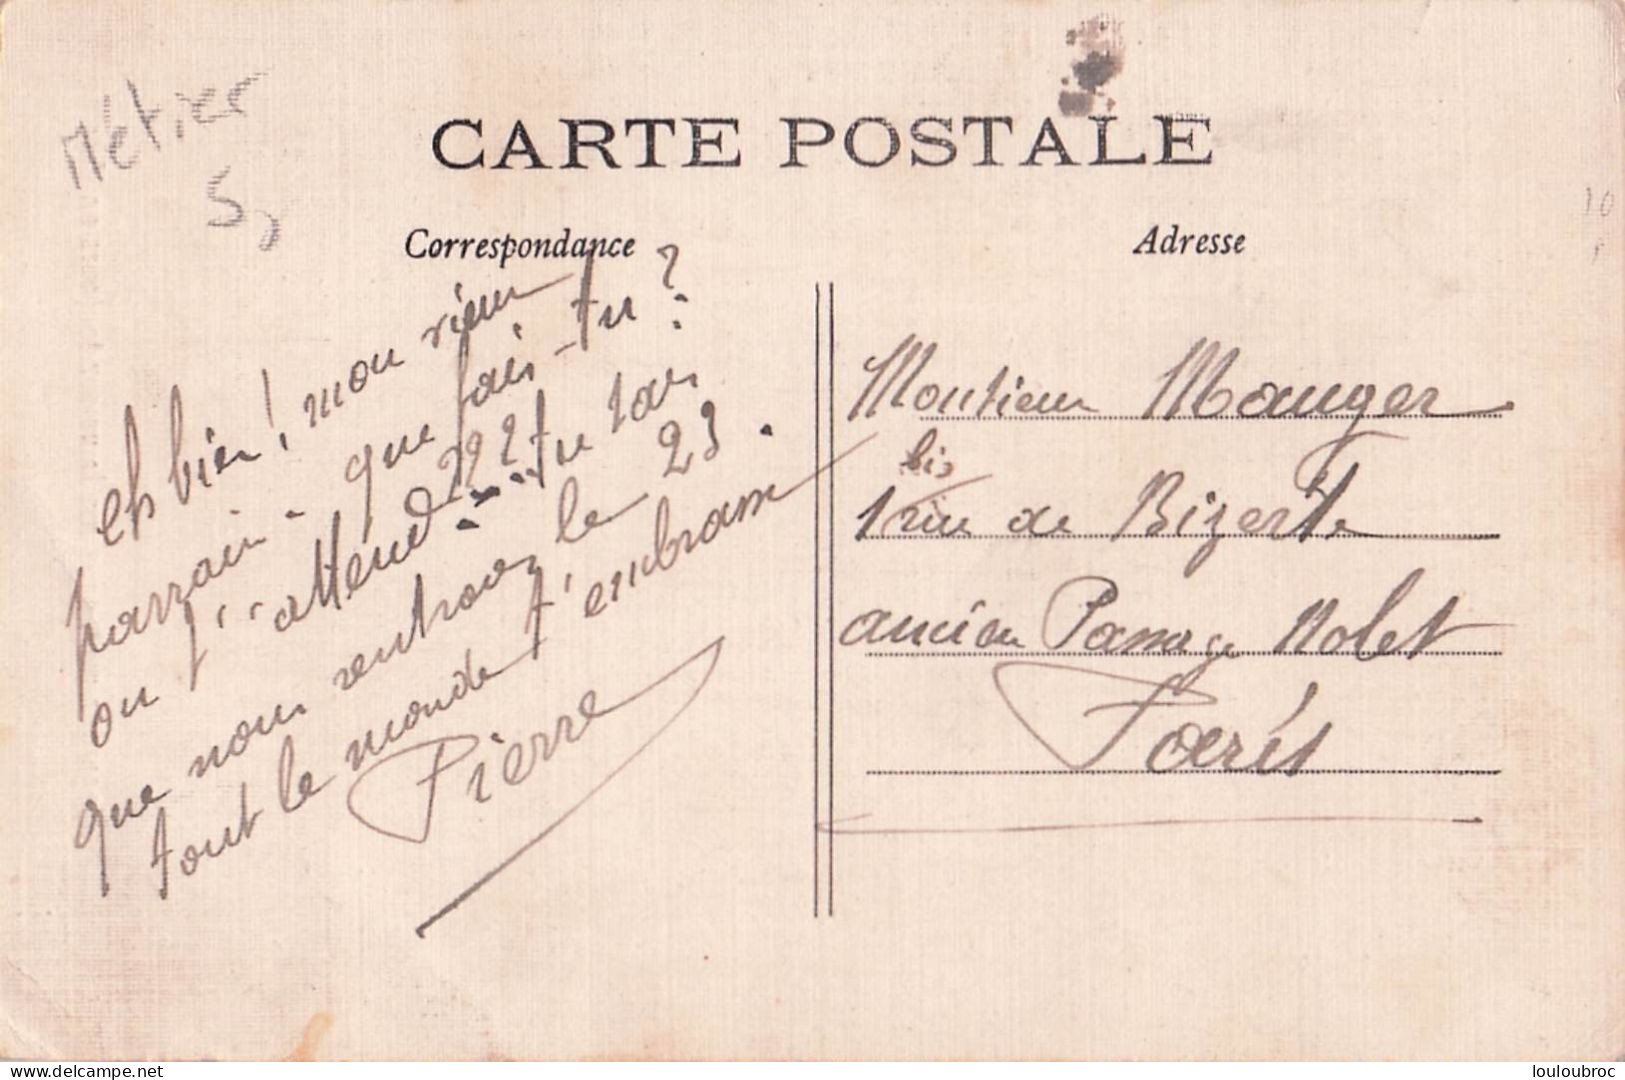 Métier
S,
CARTE POSTALE
10
Correspondance
Adresse
eh bien! mon vieux
parrain. que fais-tu?
on t'attend ??? tu sais
que nous rentrons le 23.
tout le monde t'embrasse
Pierre
Monsieur Mauger
bis
1 rue de Bizerte
ancien Passage Nolet
Paris
delcampe.net
louloubroc